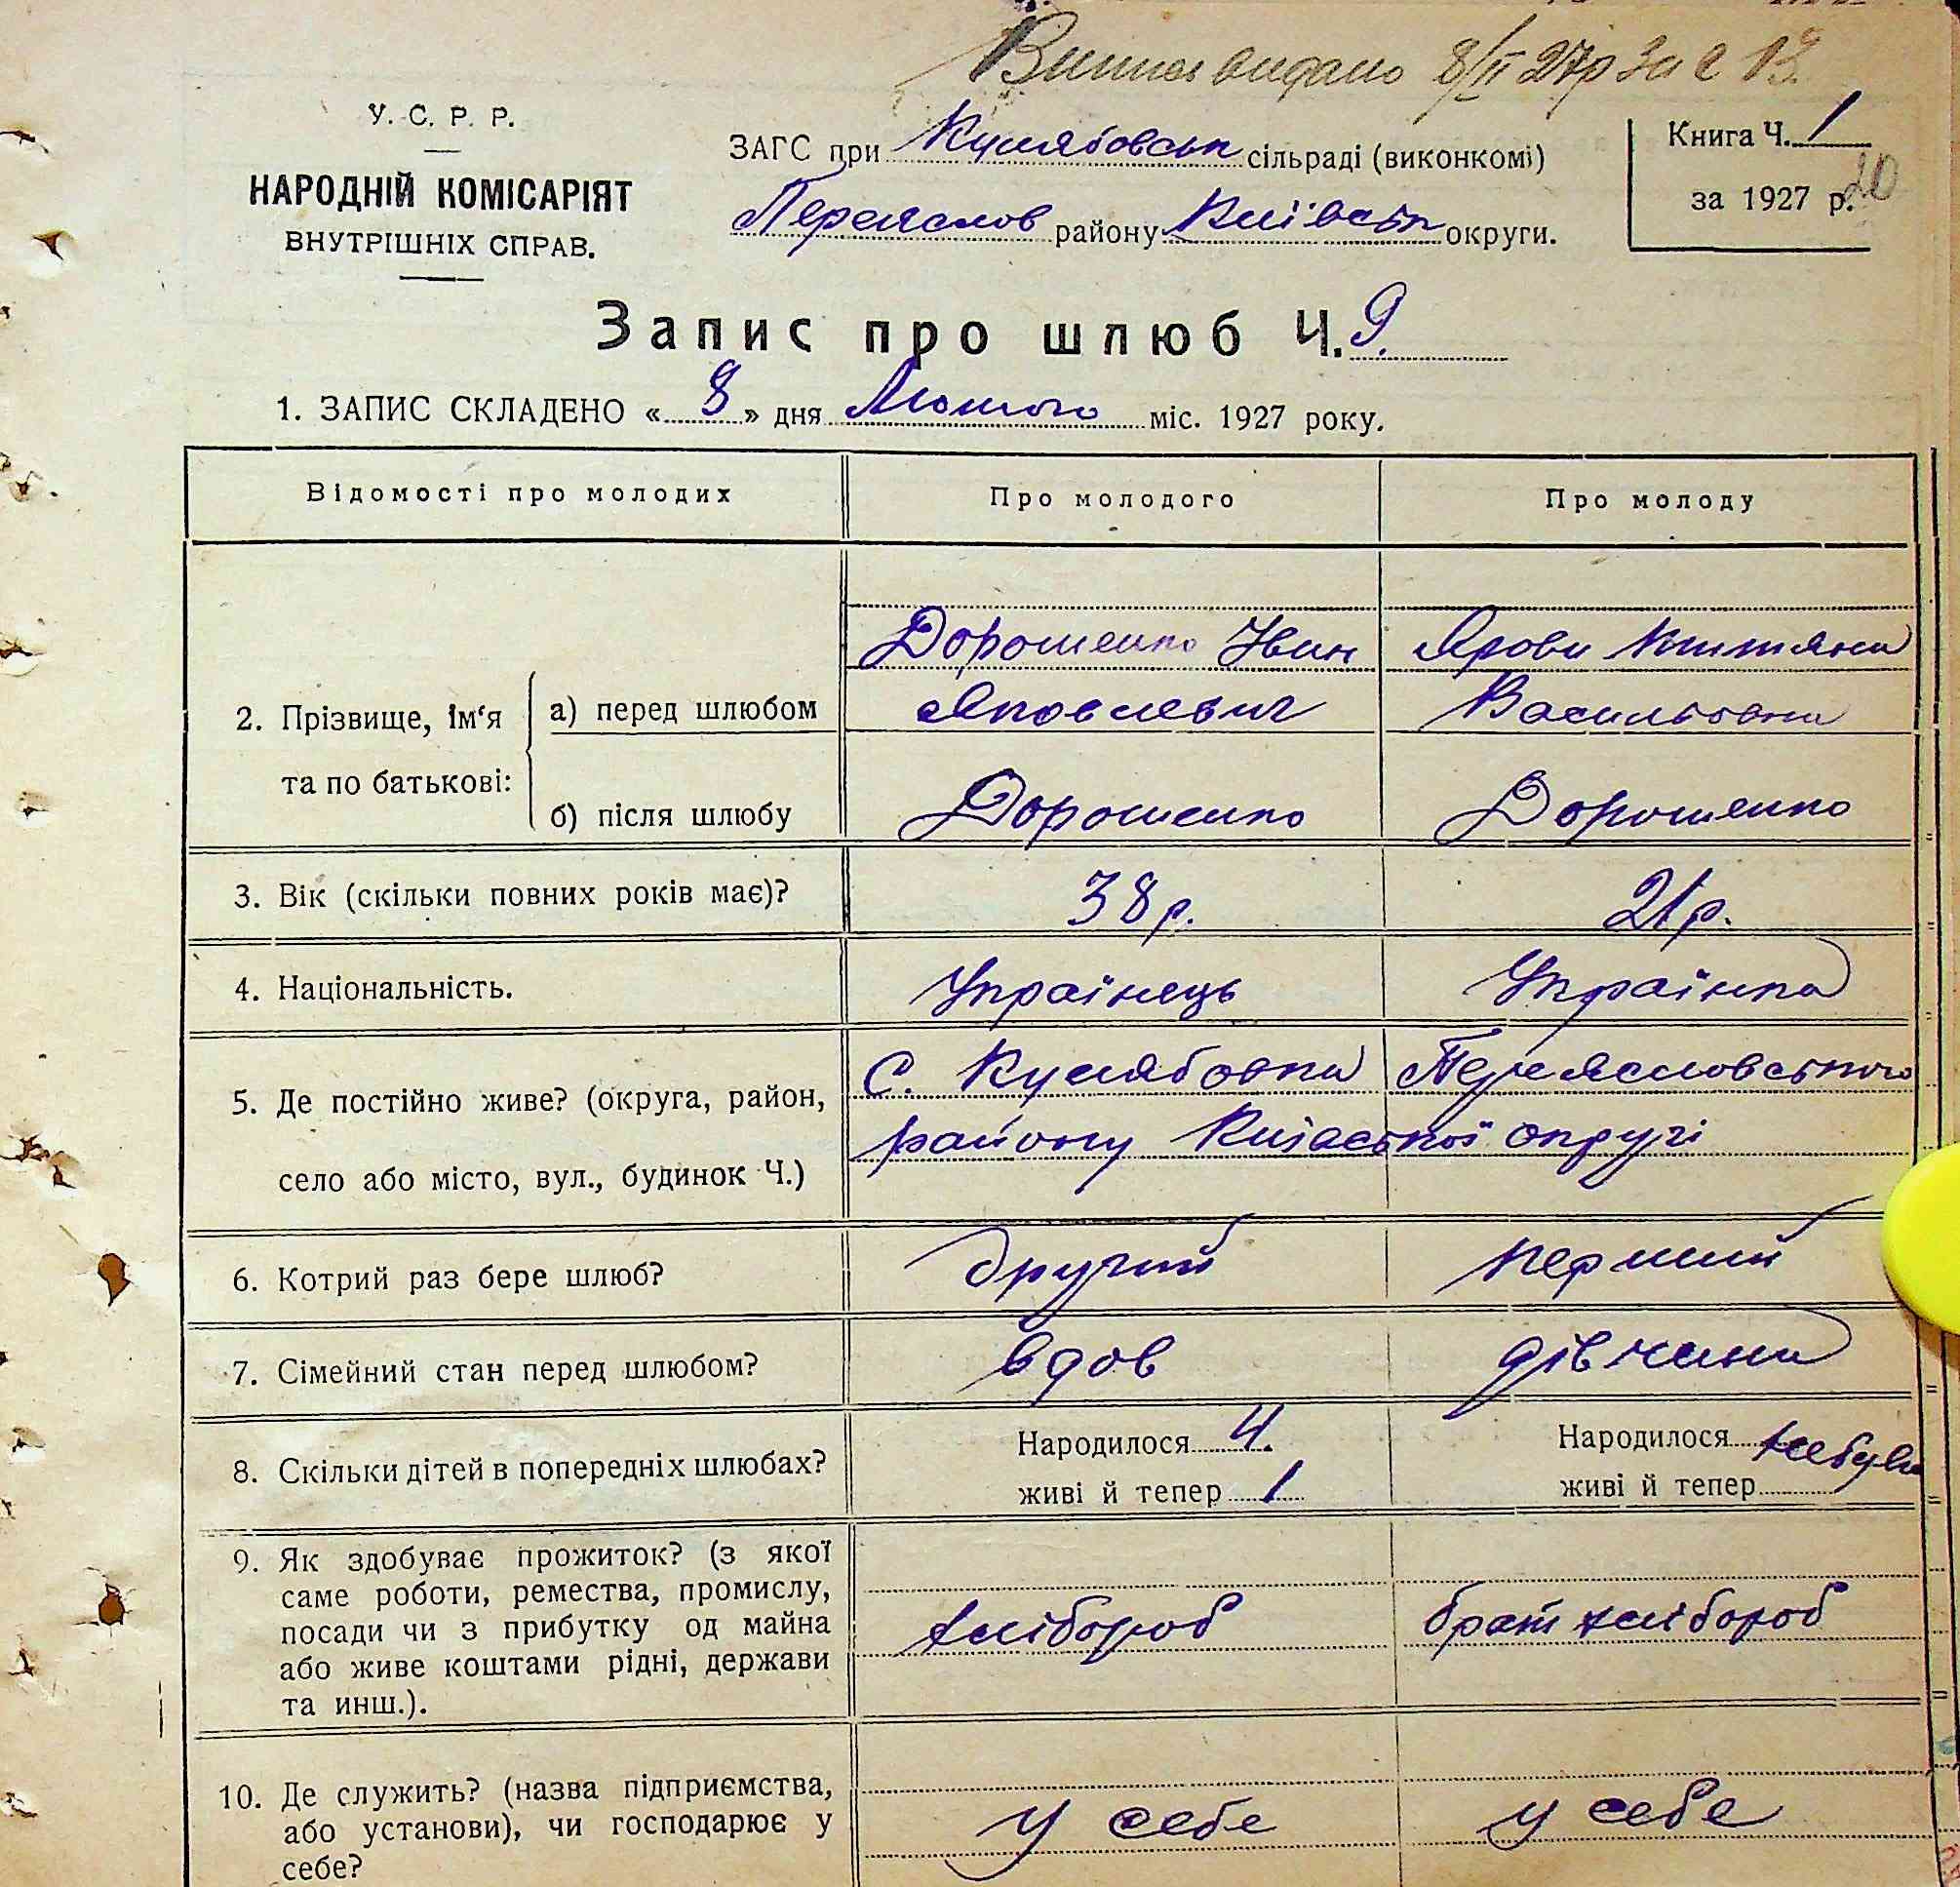 Випис видано 8/II 27р за № 19
У. С. Р. Р.
НАРОДНІЙ КОМІСАРІЯТ
ВНУТРІШНІХ СПРАВ.
ЗАГС при Кулябовськ сільраді (виконкомі)
Переяслов району Київськ округи.
Книга Ч. 1
за 1927 р.
20
Запис про шлюб Ч. 9.
1. ЗАПИС СКЛАДЕНО «8» дня Лютого міс. 1927 року.
Відомості про молодих Про молодого Про молоду
Дорошенко Іван Ярова
2. Прізвище, ім'я а) перед шлюбом Яковлевич Васильовна
та по батькові:
б) після шлюбу Дорошенко Дорошенко
3. Вік (скільки повних років має)? 38 р. 21 р.
4. Національність. Українець Українка
5. Де постійно живе? (округа, район, С. Кулябовка Переясловського
району Київської округі
село або місто, вул., будинок Ч.)
6. Котрий раз бере шлюб? другий перший
7. Сімейний стан перед шлюбом? вдов дівчина
8. Скільки дітей в попередніх шлюбах? Народилося 4. Народилося небули
живі й тепер 1 живі й тепер
9. Як здобуває прожиток? (з якої
саме роботи, ремества, промислу,
посади чи з прибутку од майна хлібороб брат хлібороб
або живе коштами рідні, держави
та инш.).
10. Де служить? (назва підприємства,
або установи), чи господарює у у себе у себе
себе?